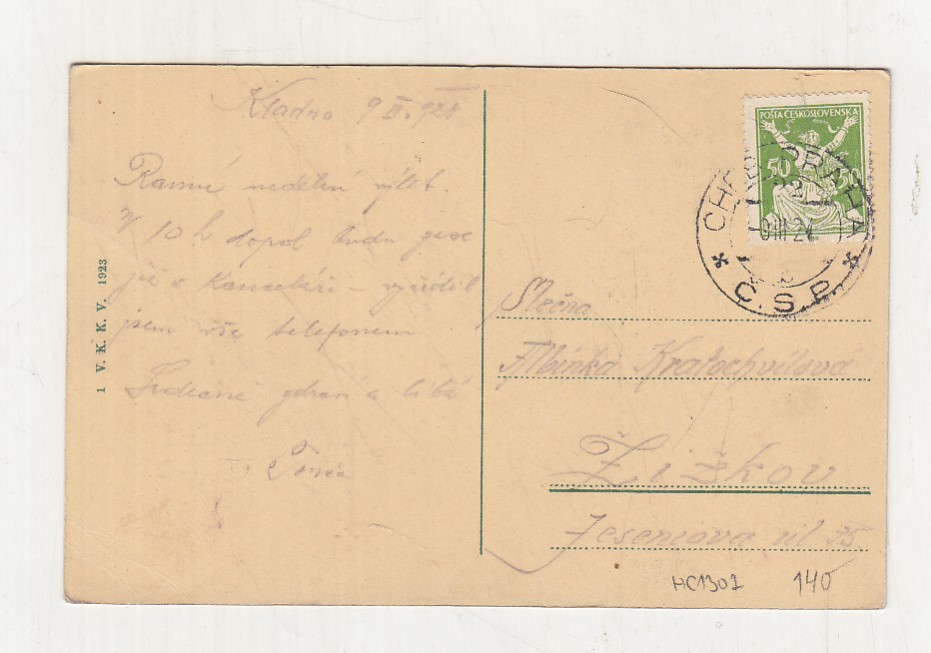 Kladno 9 III. 924
Ranní nedělní výlet.
V 10 h dopol budu zase
již v kanceláři – vyřídil
jsem vše telefonem
Srdečně zdraví a líbá
1 V. K. K. V. 1923
POŠTA ČESKOSLOVENSKÁ
50 50
CHEB PRAHA
Č. S. P.
Slečna
Albínka Kratochvílová
Žižkov
Jeseniova ul 35
HC1301 140